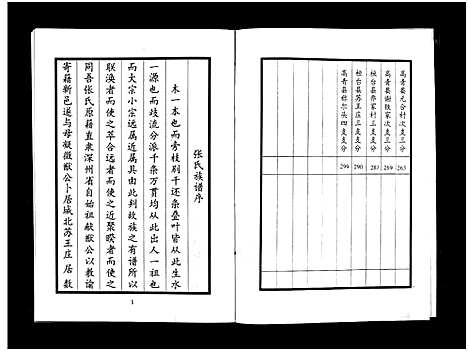 高青县元合村次支三分
263
高青县谢频家次三支分
269
桓台县乔家村三支支分
287
桓台县苏王庄三支支分
290
高青县杜尔头四支支分
299
张氏族谱序
木一本也而旁枝别干还条叠叶皆从此生水
一源也而歧流分派千条万贯均从此出人一祖也
而大宗小宗远属近属具由此判故族之有谱所以
联涣者而使之萃合远者而使之近聚暌者而使之
同吾张氏原籍直隶深州省自始祖献猷公以教谕
寄籍新邑遂与母凝薇猷公卜居城北苏王庄居数
1